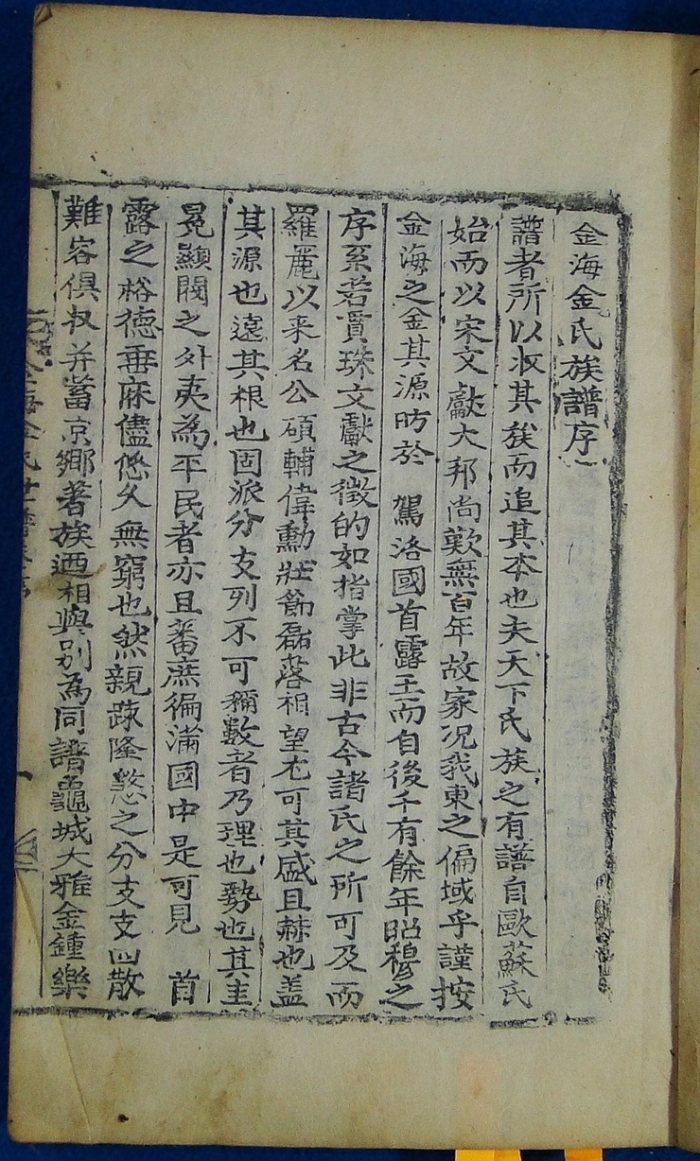 金海金氏族譜序
譜者所以收其族而追其本也夫天下氏族之有譜自歐蘇氏
始而以宋文獻大邦尚歎無百年故家况我東之偏域乎謹按
金海之金其源昉於 駕洛國首露王而自後千有餘年昭穆之
序系若貫珠文獻之徵的如指掌此非古今諸氏之所可及而
羅麗以来名公碩輔偉勳壯節磊落相望尤可其盛且赫也盖
其源也遠其根也固派分支列不可稱數者乃理也勢也其圭
冕顯閥之外夷為平民者亦且蕃庶徧滿國中是可見 首
露之裕德垂庥儘悠久無窮也然親疎隆 之分支支 散
難容俱收并蓄京鄉著族迺相與别為同譜龜城大雅金鍾樂
金海金氏世譜